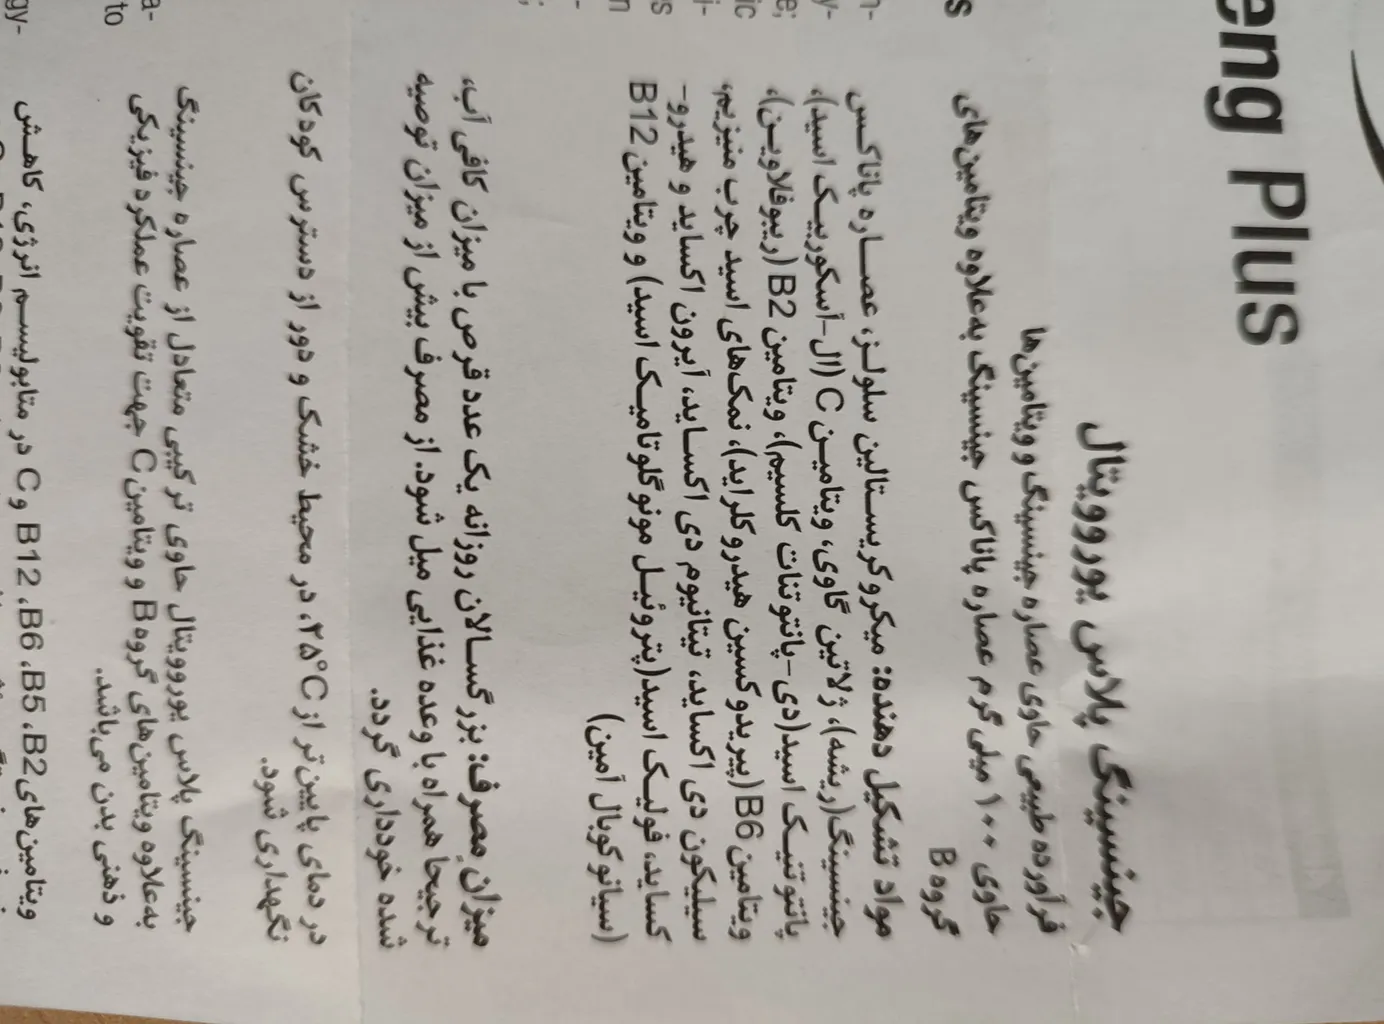 eng Plus
جینسینگ پلاس یوروویتال
فرآورده طبیعی حاوی عصاره جینسینگ و ویتامین‌ها
حاوی ۱۰۰ میلی گرم عصاره پاناکس جینسینگ به‌علاوه ویتامین‌های
گروه B
مواد تشکیل دهنده: میکروکریستالین سلولز، عصاره پاناکس
جینسینگ(ریشه)، ژلاتین گاوی، ویتامین C (ال-آسکوربیک اسید)،
پانتوتنیک اسید(دی-پانتوتنات کلسیم)، ویتامین B2 (ریبوفلاوین)،
ویتامین B6 (پیریدوکسین هیدروکلراید)، نمک‌های اسید چرب منیزیم،
سیلیکون دی اکساید، تیتانیوم دی اکساید، آیرون اکساید و هیدرو-
کساید، فولیک اسید(پتروئیل مونوگلوتامیک اسید) و ویتامین B12
(سیانوکوبال آمین)
میزان مصرف: بزرگسالان روزانه یک عدد قرص با میزان کافی آب،
ترجیحا همراه با وعده غذایی میل شود. از مصرف بیش از میزان توصیه
شده خودداری گردد.
در دمای پایین‌تر از ۲۵°C، در محیط خشک و دور از دسترس کودکان
نگهداری شود.
جینسینگ پلاس یوروویتال حاوی ترکیبی متعادل از عصاره جینسینگ
به‌علاوه ویتامین‌های گروه B و ویتامین C جهت تقویت عملکرد فیزیکی
و ذهنی بدن می‌باشد.
ویتامین‌های B2، B5، B6، B12 و C در متابولیسم انرژی، کاهش